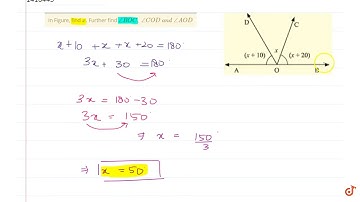 In Figure, find x. Further find ∠BOC, ∠COD and ∠AOD
x+10 + x + x+20 = 180°
3x + 30 = 180°
3x = 180-30
3x = 150
⇒ x = 150/3
⇒ x = 50
D
C
x
(x + 10)
(x + 20)
A
O